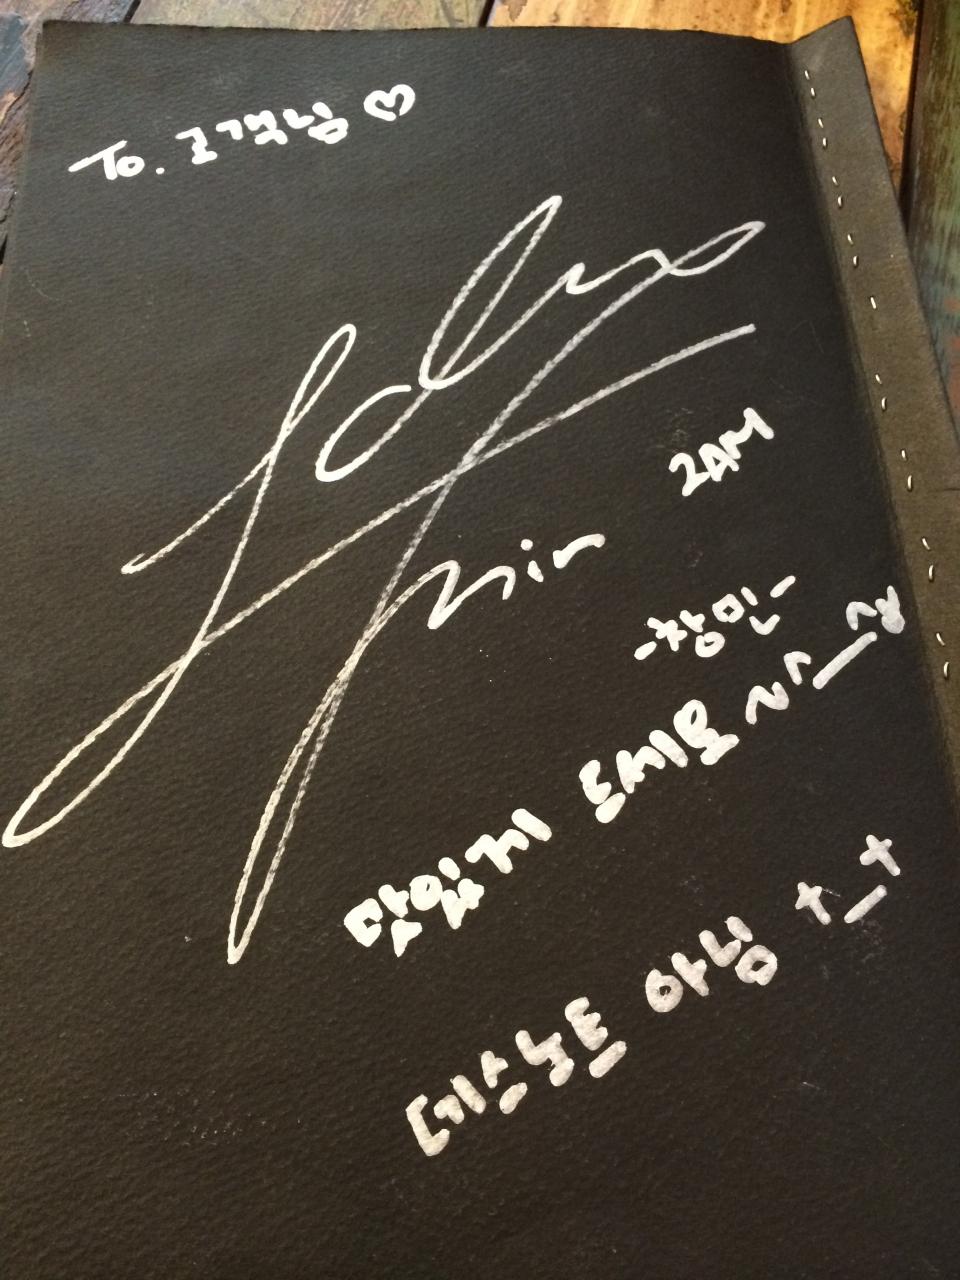 To. 고객님 ♡
min
2AM
-창민-
맛있게 드세요 ~^_^
데스노트 아님 +_+